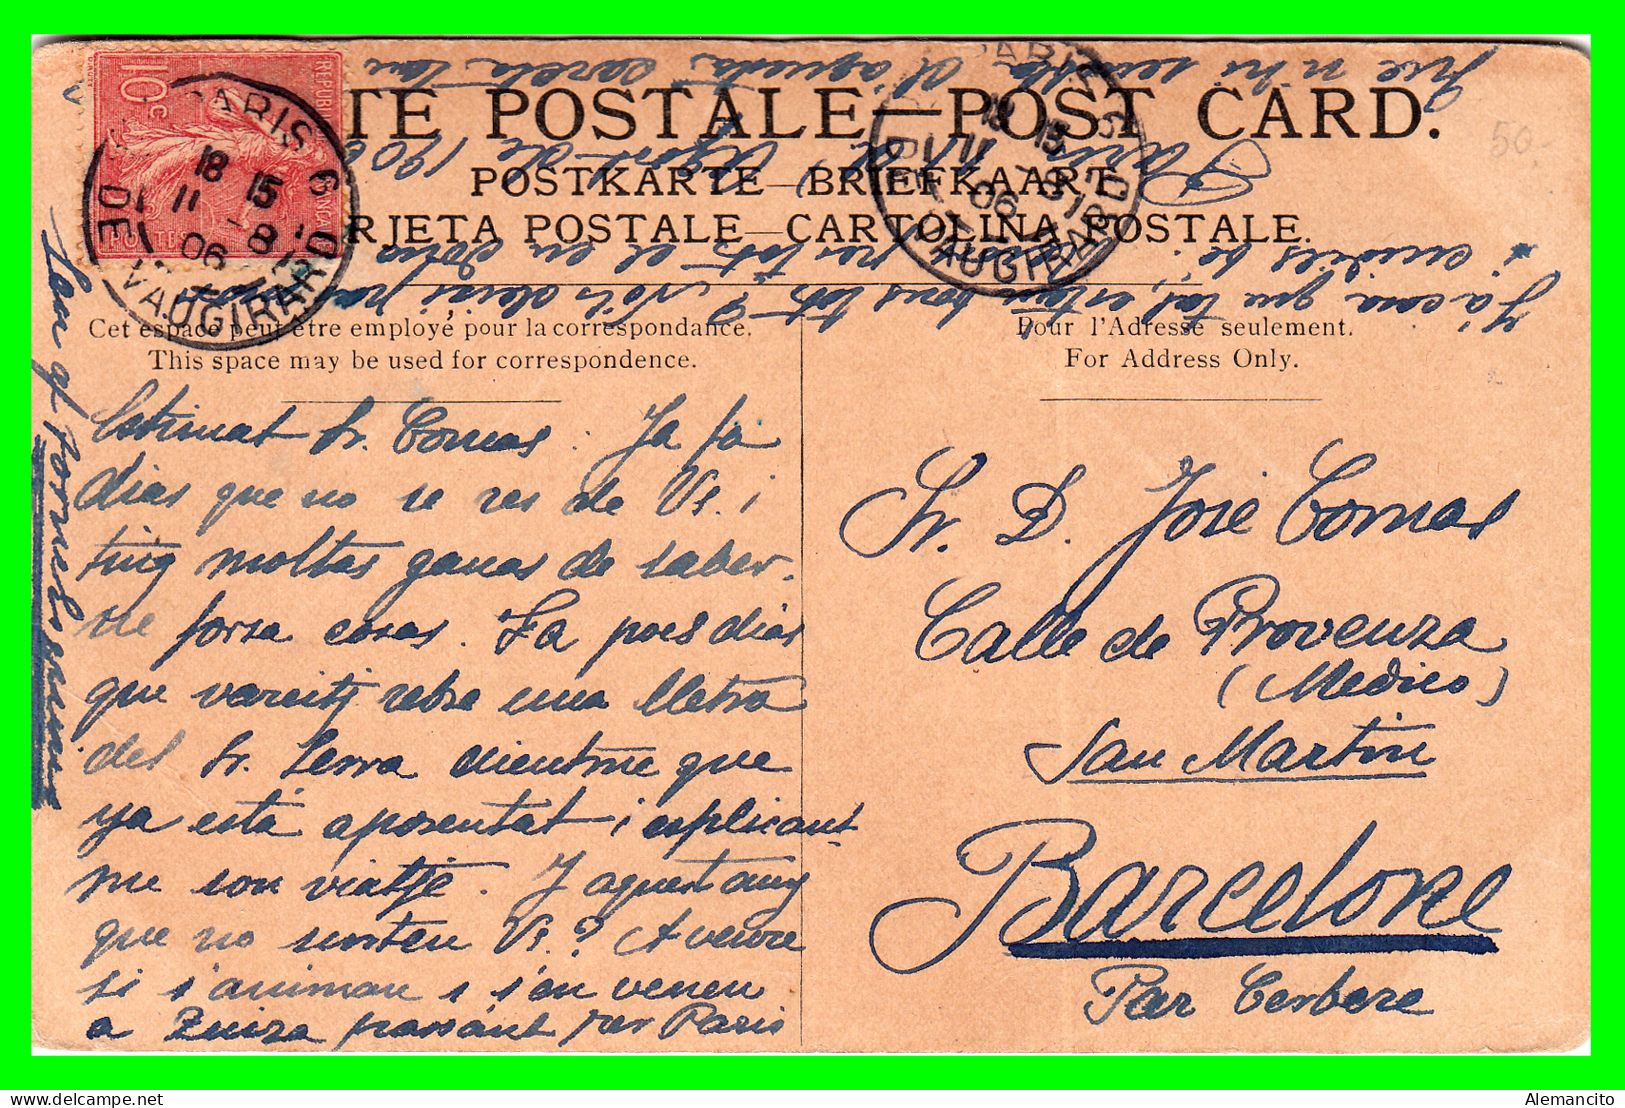 CARTE POSTALE—POST CARD.
POSTKARTE—BRIEFKAART
TARJETA POSTALE—CARTOLINA POSTALE.
Cet espace peut être employé pour la correspondance.
This space may be used for correspondence.
Pour l'Adresse seulement.
For Address Only.
10c
POSTES
PARIS 6
18 15
11 -8
06
DE VAUGIRARD
PARIS 6
18 15
11 -8
06
R. DE VAUGIRARD
50.-
Paris 11 Agost de 190
Estimat Sr. Comas: Ja fa
dias que no se res de Vs. i
ting moltas ganas de saber-
ne forsa cosas. Fa pocs dias
que vareitj rebre una lletra
del Sr. Serra dientme que
ya está aposentat i esplicant
me son viatje. I aquest any
que no surten Vs? A veure
si s'animan i s'en venen
a Zuiza passant per Paris
que n'hi
Sr. D. José Comas
Calle de Provenza
(Medico)
San Martin
Barcelone
Par Cerbere
Alemancito